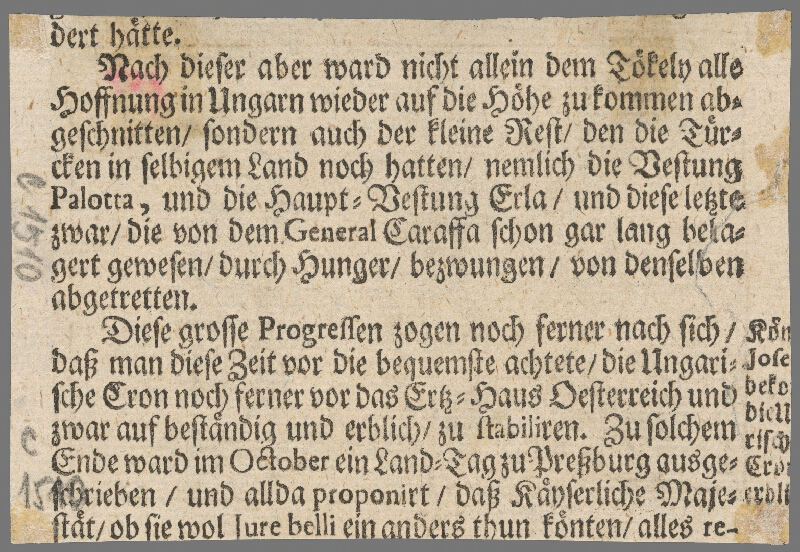 dert hätte.
Nach dieser aber ward nicht allein dem Tökely alle
Hoffnung in Ungarn wieder auf die Höhe zu kommen ab-
geschnitten/ sondern auch der kleine Rest/ den die Tür-
cken in selbigem Land noch hatten/ nemlich die Vestung
Palotta, und die Haupt-Vestung Erla/ und diese letzte
zwar/ die von dem General Caraffa schon gar lang belä-
gert gewesen/ durch Hunger/ bezwungen/ von denselben
abgetretten.
Diese grosse Progressen zogen noch ferner nach sich/
daß man diese Zeit vor die bequemste achtete/ die Ungari-
sche Cron noch ferner vor das Ertz-Haus Oesterreich und
zwar auf beständig und erblich/ zu stabiliren. Zu solchem
Ende ward im October ein Land-Tag zu Preßburg ausge-
schrieben/ und allda proponirt/ daß Käyserliche Maje-
stät/ ob sie wol Jure belli ein anders thun könten/ alles re-
Kön
Jose
beko
die U
risch
Cron
erbli
C 1510
C
1510